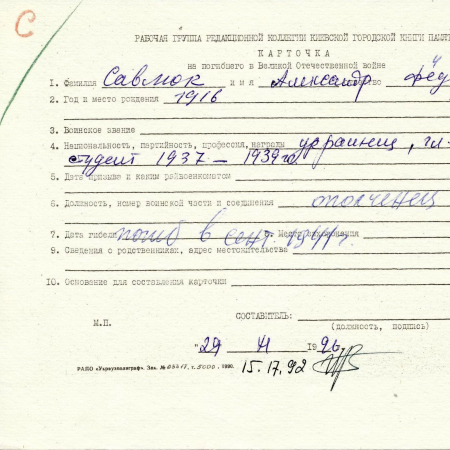 С
РАБОЧАЯ ГРУППА РЕДАКЦИОННОЙ КОЛЛЕГИИ КИЕВСКОЙ ГОРОДСКОЙ КНИГИ ПАМЯТ
КАРТОЧКА
на погибшего в Великой Отечественной войне
1. Фамилия Савлюк имя Александр отчество Фёд
2. Год и место рождения 1916
3. Воинское звание
4. Национальность, партийность, профессия, награды украинец,
студент 1937 – 1939 гг
5. Дата призыва и каким райвоенкоматом
6. Должность, номер воинской части и соединения ополченец
7. Дата гибели погиб в сент. 1941 г. 8. Место захоронения
9. Сведения о родственниках, адрес местожительства
10. Основание для составления карточки
СОСТАВИТЕЛЬ:
(должность, подпись)
М.П.
"29 1996.
РАПО «Укрвузполиграф». Зак. № т. 5000, 1990.
15.17.92